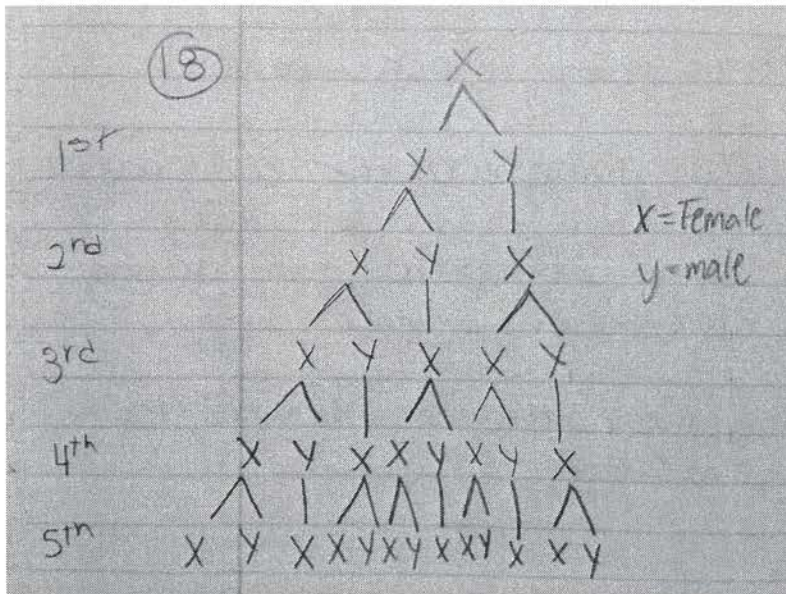 18
X
1st X Y
X = Female
2nd X Y X
y = male
3rd X Y X X Y
4th X Y X X Y X Y X
5th X Y X X Y X Y X X Y X X Y